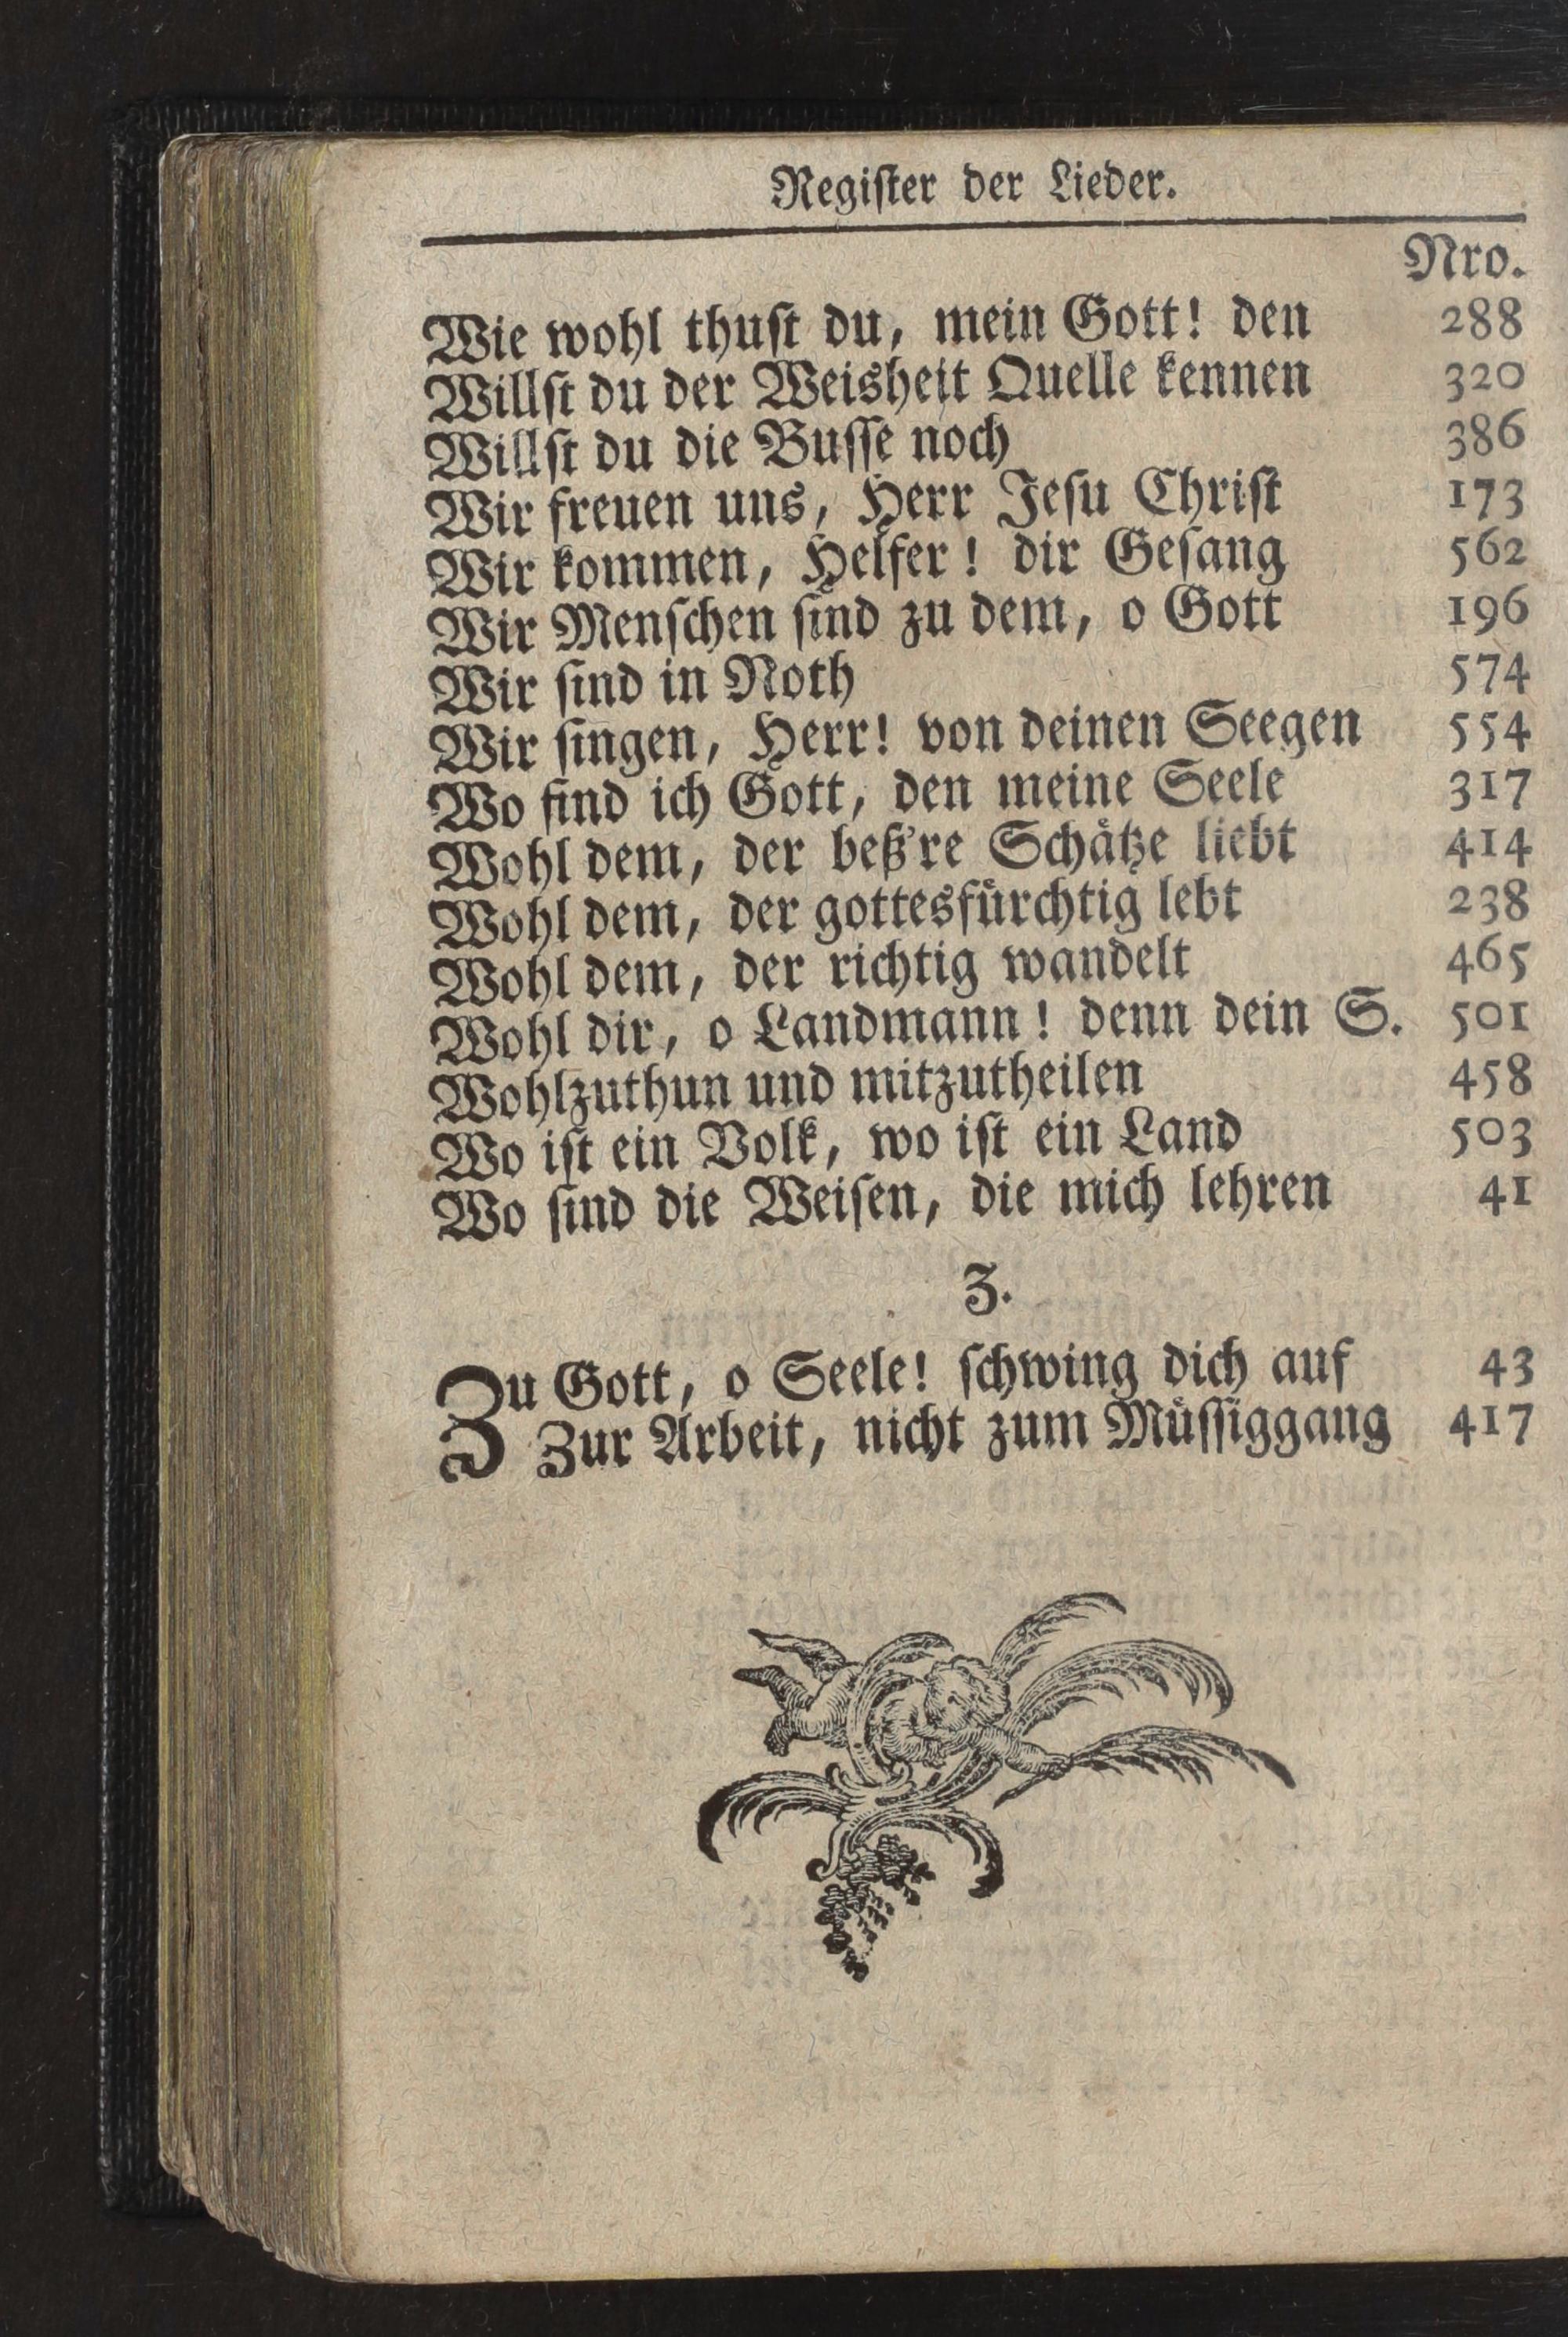 Regiſter der Lieder.
Nro.
Wie wohl thuſt du, mein Gott! den 288
Willſt du der Weisheit Quelle kennen 320
Willſt du die Buſſe noch 386
Wir freuen uns, Herr Jeſu Chriſt 173
Wir kommen, Helfer! dir Geſang 562
Wir Menſchen ſind zu dem, o Gott 196
Wir ſind in Noth 574
Wir ſingen, Herr! von deinen Seegen 554
Wo find ich Gott, den meine Seele 317
Wohl dem, der beß're Schätze liebt 414
Wohl dem, der gottesfürchtig lebt 238
Wohl dem, der richtig wandelt 465
Wohl dir, o Landmann! denn dein S. 501
Wohlzuthun und mitzutheilen 458
Wo iſt ein Volk, wo iſt ein Land 503
Wo ſind die Weiſen, die mich lehren 41
Z.
Zu Gott, o Seele! ſchwing dich auf 43
Zur Arbeit, nicht zum Müſſiggang 417